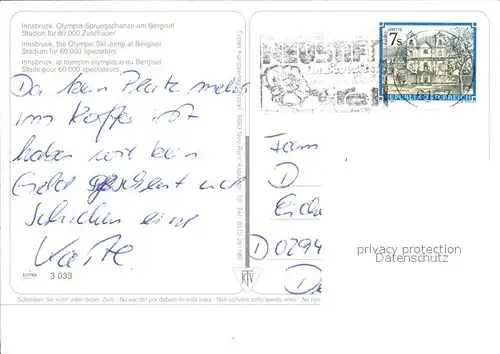 Innsbruck, Olympia-Sprungschanze am Bergisel
Stadion für 60.000 Zuschauer
Innsbruck, the Olympic Ski Jump at Bergisel
Stadium for 60.000 spectators
Innsbruck, le tremplin olympique du Bergisel
Stade pour 60.000 spectateurs
Da kein Platz mehr
im Koffer ist
haben wir kein
Geld und
schicken eine
Karte.
ALPINA
3 033
KTV
Tiroler Kunstverlag
NEUSTIFT
7 S
REPUBLIK ÖSTERREICH
Fam
D
D0294
privacy protection
Datenschutz
Schreiben Sie nicht unter dieser Zeile - No escribir por debajo de esta linea - Non scrivere sotto questa linea